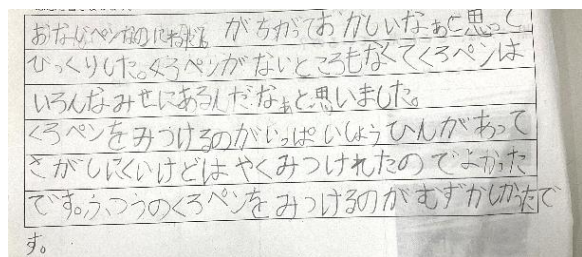 おなじペンなのにねだんがちがっておかしいなぁと思って
びっくりした。くろペンがないところもなくてくろペンは
いろんなみせにあるんだなぁと思いました。
くろペンをみつけるのがいっぱいしょうひんがあって
さがしにくいけどはやくみつけれたのでよかった
です。ふつうのくろペンをみつけるのがむずかしかったで
す。